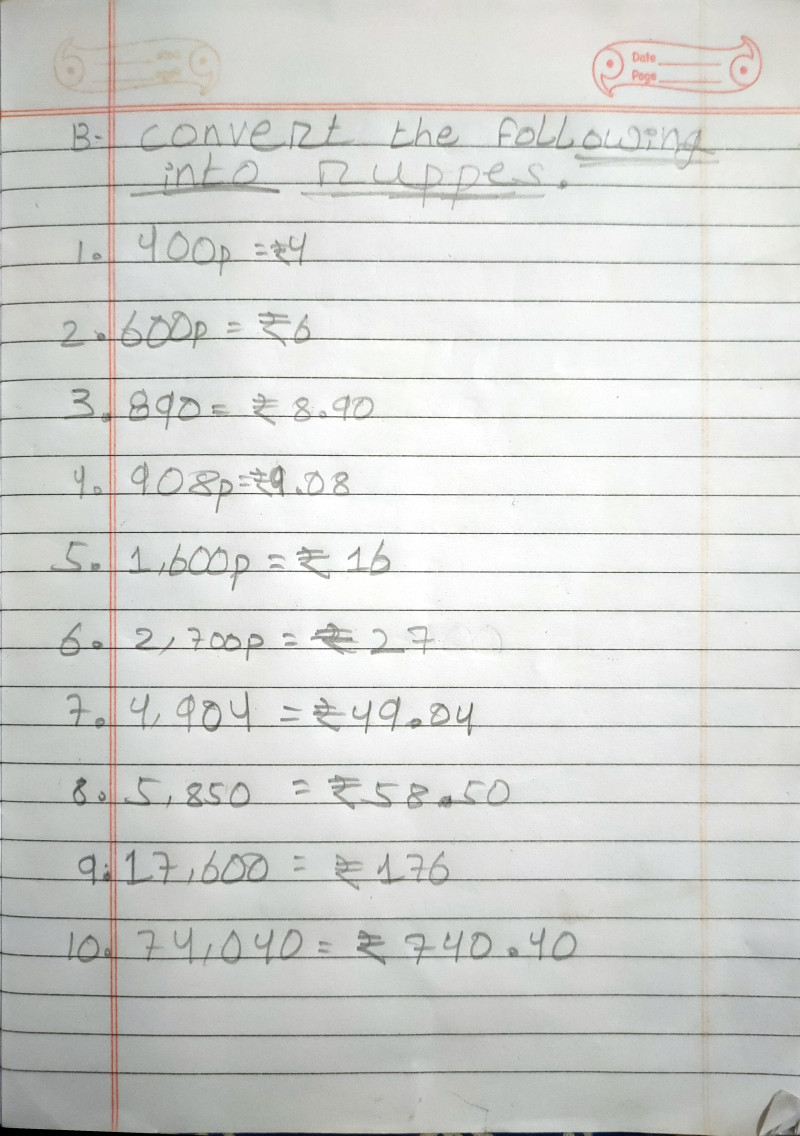 Date
Page
B- convert the following
into Ruppes.
1. 400p = ₹4
2. 600p = ₹6
3. 890 = ₹ 8.90
4. 908p = ₹9.08
5. 1,600p = ₹ 16
6. 2,700p = ₹ 27
7. 4,904 = ₹49.04
8. 5,850 = ₹58.50
9. 17,600 = ₹176
10. 74,040 = ₹ 740.40